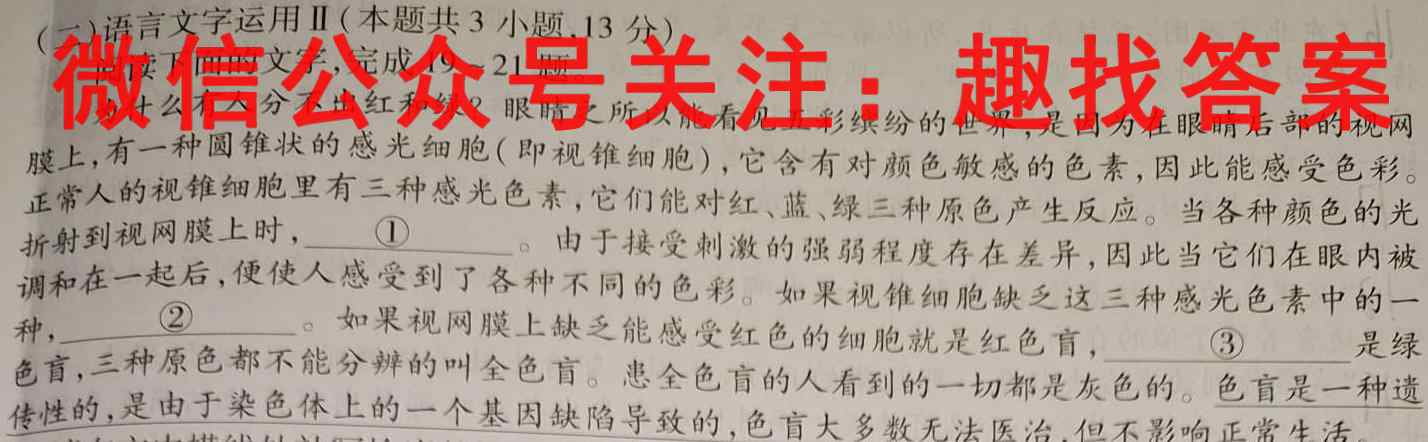 (二)语言文字运用Ⅱ(本题共3小题,13分)
阅读下面的文字,完成19~21题。
微信公众号关注:趣找答案
为什么有人分不出红和绿?眼睛之所以能看见五彩缤纷的世界,是因为在眼睛后部的视网
膜上,有一种圆锥状的感光细胞(即视锥细胞),它含有对颜色敏感的色素,因此能感受色彩。
正常人的视锥细胞里有三种感光色素,它们能对红、蓝、绿三种原色产生反应。当各种颜色的光
折射到视网膜上时,①。由于接受刺激的强弱程度存在差异,因此当它们在眼内被
调和在一起后,便使人感受到了各种不同的色彩。如果视锥细胞缺乏这三种感光色素中的一
种,②。如果视网膜上缺乏能感受红色的细胞就是红色盲,③是绿
色盲,三种原色都不能分辨的叫全色盲。患全色盲的人看到的一切都是灰色的。色盲是一种遗
传性的,是由于染色体上的一个基因缺陷导致的,色盲大多数无法医治,但不影响正常生活